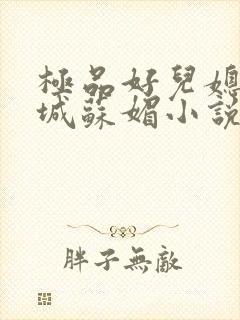 極品好兒媳
城蘇媚小說
胖子無敵